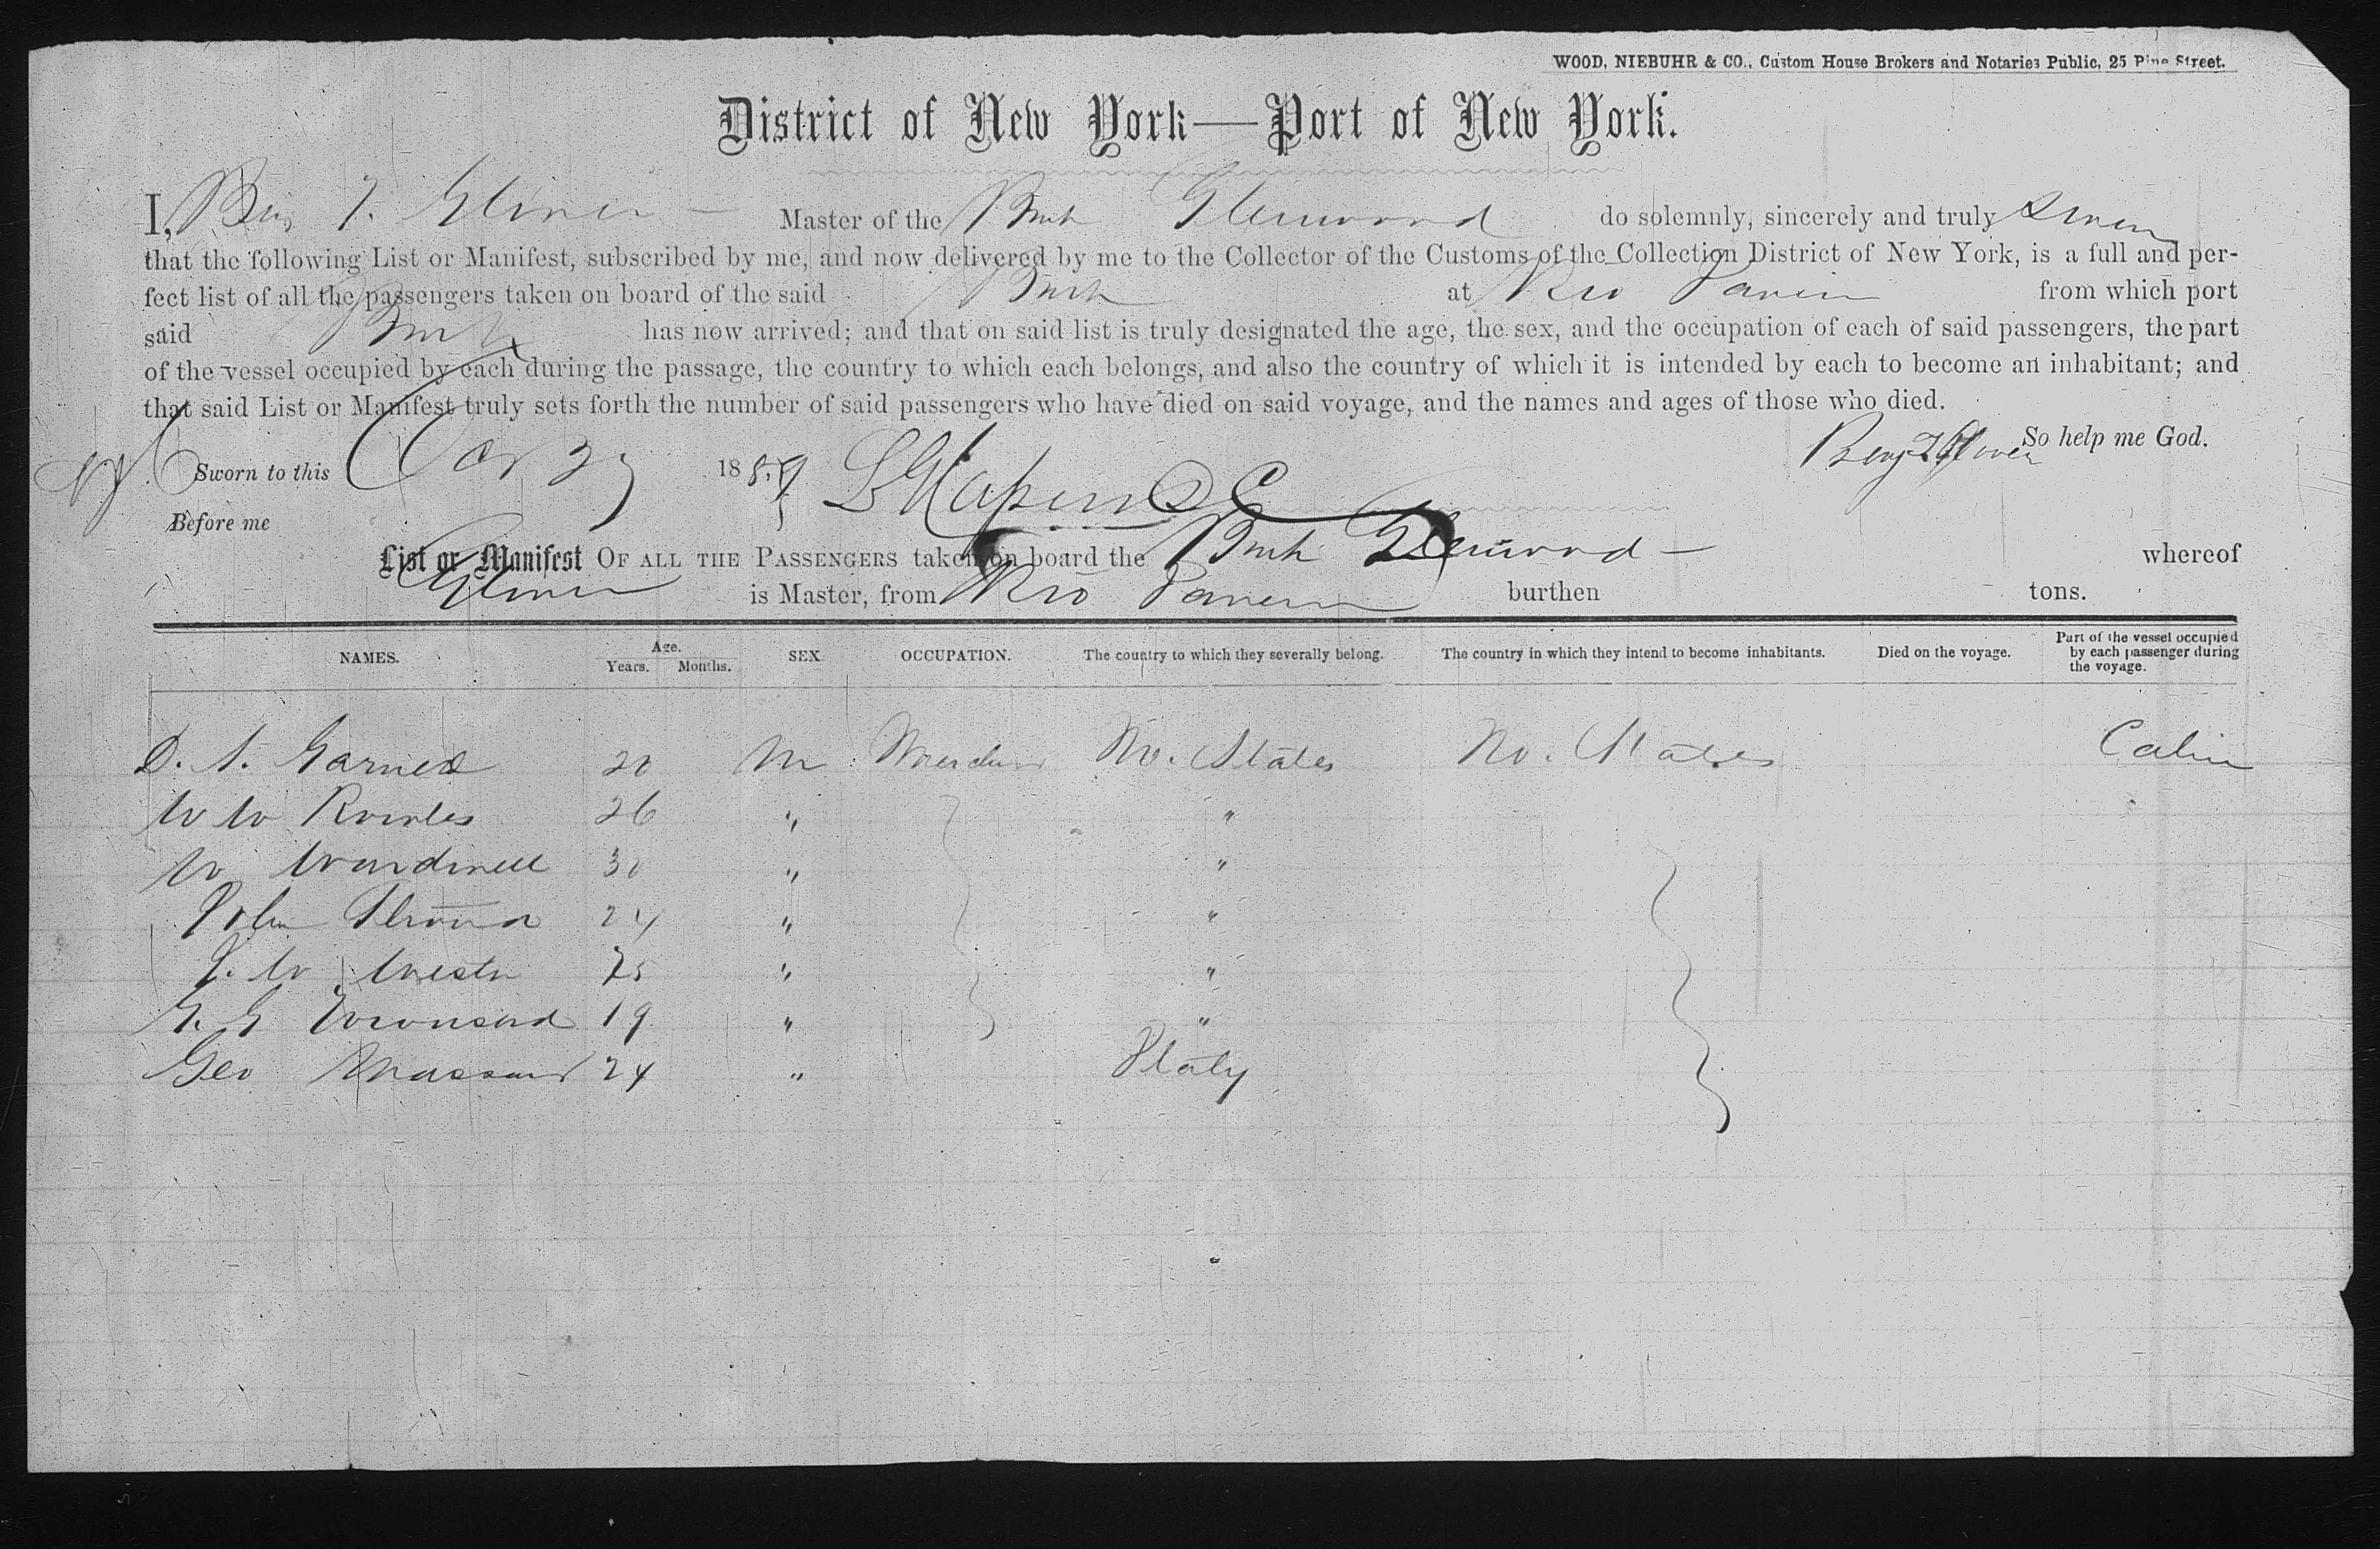 WOOD, NIEBUHR & CO., Custom House Brokers and Notaries Public, 25 Pine Street.
District of New York—Port of New York.
I, Benj F. Glover — Master of the Bark Glenwood do solemnly, sincerely and truly swear
that the following List or Manifest, subscribed by me, and now delivered by me to the Collector of the Customs of the Collection District of New York, is a full and per-
fect list of all the passengers taken on board of the said Bark at Rio from which port
said Bark has now arrived; and that on said list is truly designated the age, the sex, and the occupation of each of said passengers, the part
of the vessel occupied by each during the passage, the country to which each belongs, and also the country of which it is intended by each to become an inhabitant; and
that said List or Manifest truly sets forth the number of said passengers who have died on said voyage, and the names and ages of those who died.
So help me God.
Sworn to this 1859 Benj F Glover
Before me
List or Manifest OF ALL THE PASSENGERS taken on board the Bark Glenwood — whereof
Glover is Master, from Rio burthen tons.
NAMES. Age. Years. Months. SEX. OCCUPATION. The country to which they severally belong. The country in which they intend to become inhabitants. Died on the voyage. Part of the vessel occupied by each passenger during the voyage.
D. S. Garned 20 M No. States No. States Cabin
W W Rowles 26 " "
W Wardwell 30 " "
John Stroud 24 " "
J. W. 25 " "
G. G Townsend 19 " "
Geo 24 " Italy